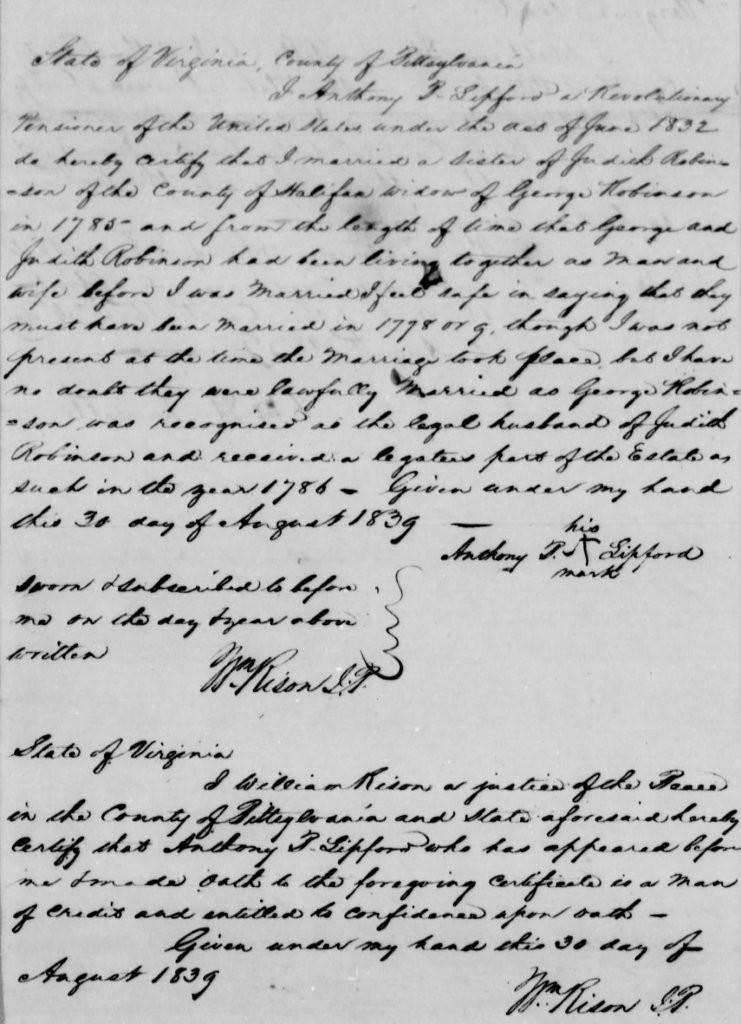 State of Virginia, County of Pittsylvania
I Anthony P. Lipford a Revolutionary
Pensioner of the United States under the act of June 1832
do hereby certify that I married a sister of Judith Robin=
=son of the County of Halifax widow of George Robinson
in 1785 and from the length of time that George and
Judith Robinson had been living together as man and
wife before I was married I feel safe in saying that they
must have been married in 1778 or 9, though I was not
present at the time the marriage took place, but I have
no doubt they were lawfully married as George Robin=
=son was recognised as the legal husband of Judith
Robinson and received a legatees part of the Estate as
such in the year 1786 — Given under my hand
this 30 day of August 1839 —
his
Anthony P. X Lipford
mark
sworn & subscribed to before
me on the day & year above
written
Wm Rison J.P.
State of Virginia
I William Rison a justice of the Peace
in the County of Pittsylvania and State aforesaid hereby
certify that Anthony P. Lipford who has appeared before
me & made oath to the foregoing certificate is a man
of credit and entitled to confidence upon oath —
Given under my hand this 30 day of
August 1839
Wm Rison J.P.